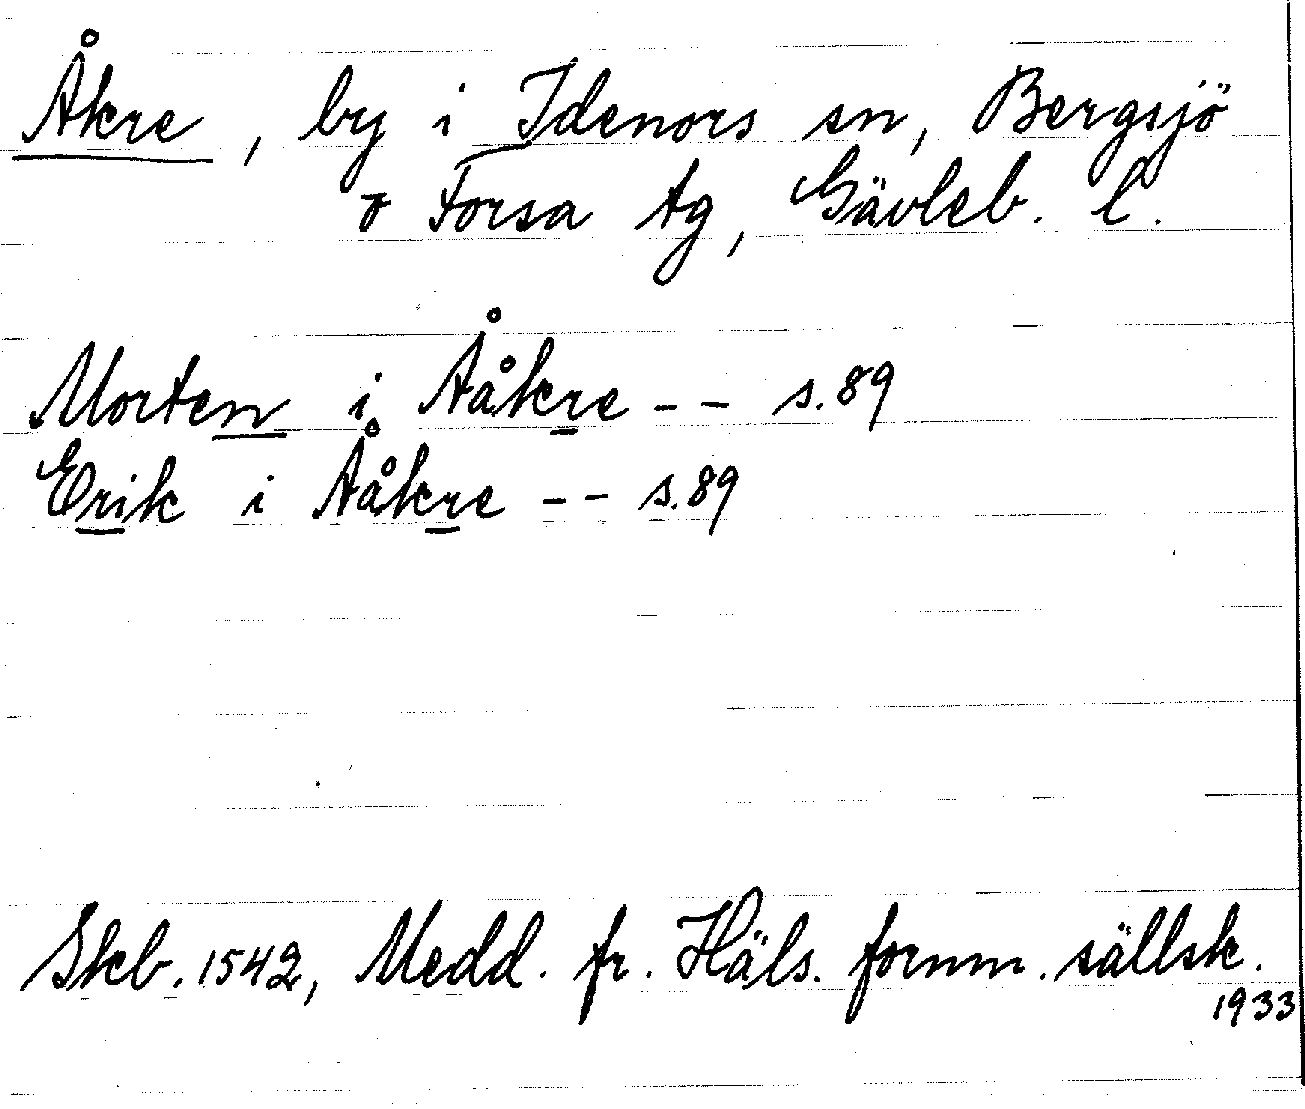 Åkre, by i Idenors sn, Bergsjö
o Forsa tg, Gävleb. l.
Morten i Ååkre -- s. 89
Erik i Ååkre -- s. 89
Skb. 1542, Medd. fr. Häls. fornm. sällsk.
1933